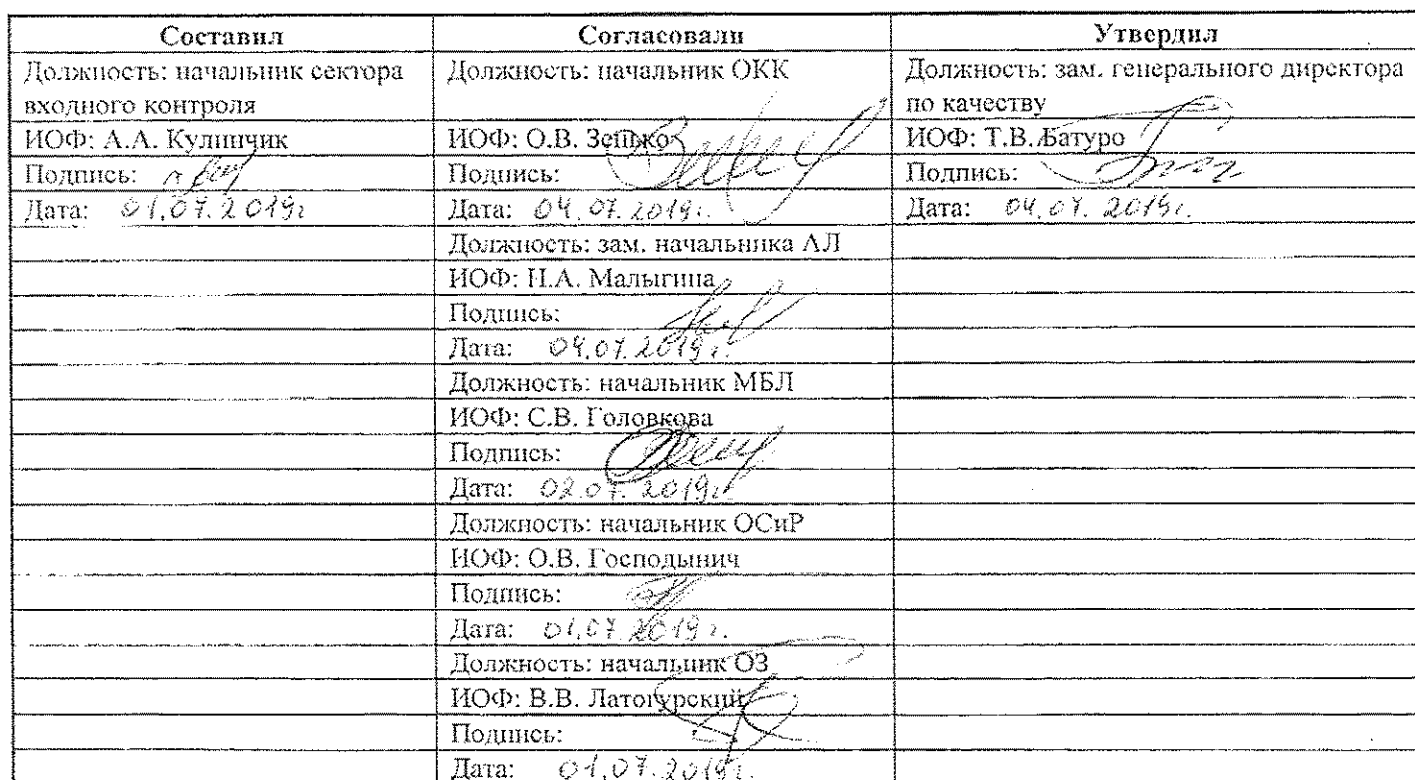 Составил Согласовали Утвердил
Должность: начальник сектора входного контроля Должность: начальник ОКК Должность: зам. генерального директора по качеству
ИОФ: А.А. Кулинчик ИОФ: О.В. Зенько ИОФ: Т.В. Батуро
Подпись: Подпись: Подпись:
Дата: 01.07.2019г Дата: 04.07.2019г. Дата: 04.07.2019г.
Должность: зам. начальника АЛ
ИОФ: Н.А. Малыгина
Подпись:
Дата: 04.07.2019г.
Должность: начальник МБЛ
ИОФ: С.В. Головкова
Подпись:
Дата: 02.07.2019г
Должность: начальник ОСиР
ИОФ: О.В. Господынич
Подпись:
Дата: 01.07.2019г.
Должность: начальник ОЗ
ИОФ: В.В. Латогурский
Подпись:
Дата: 01.07.2019г.